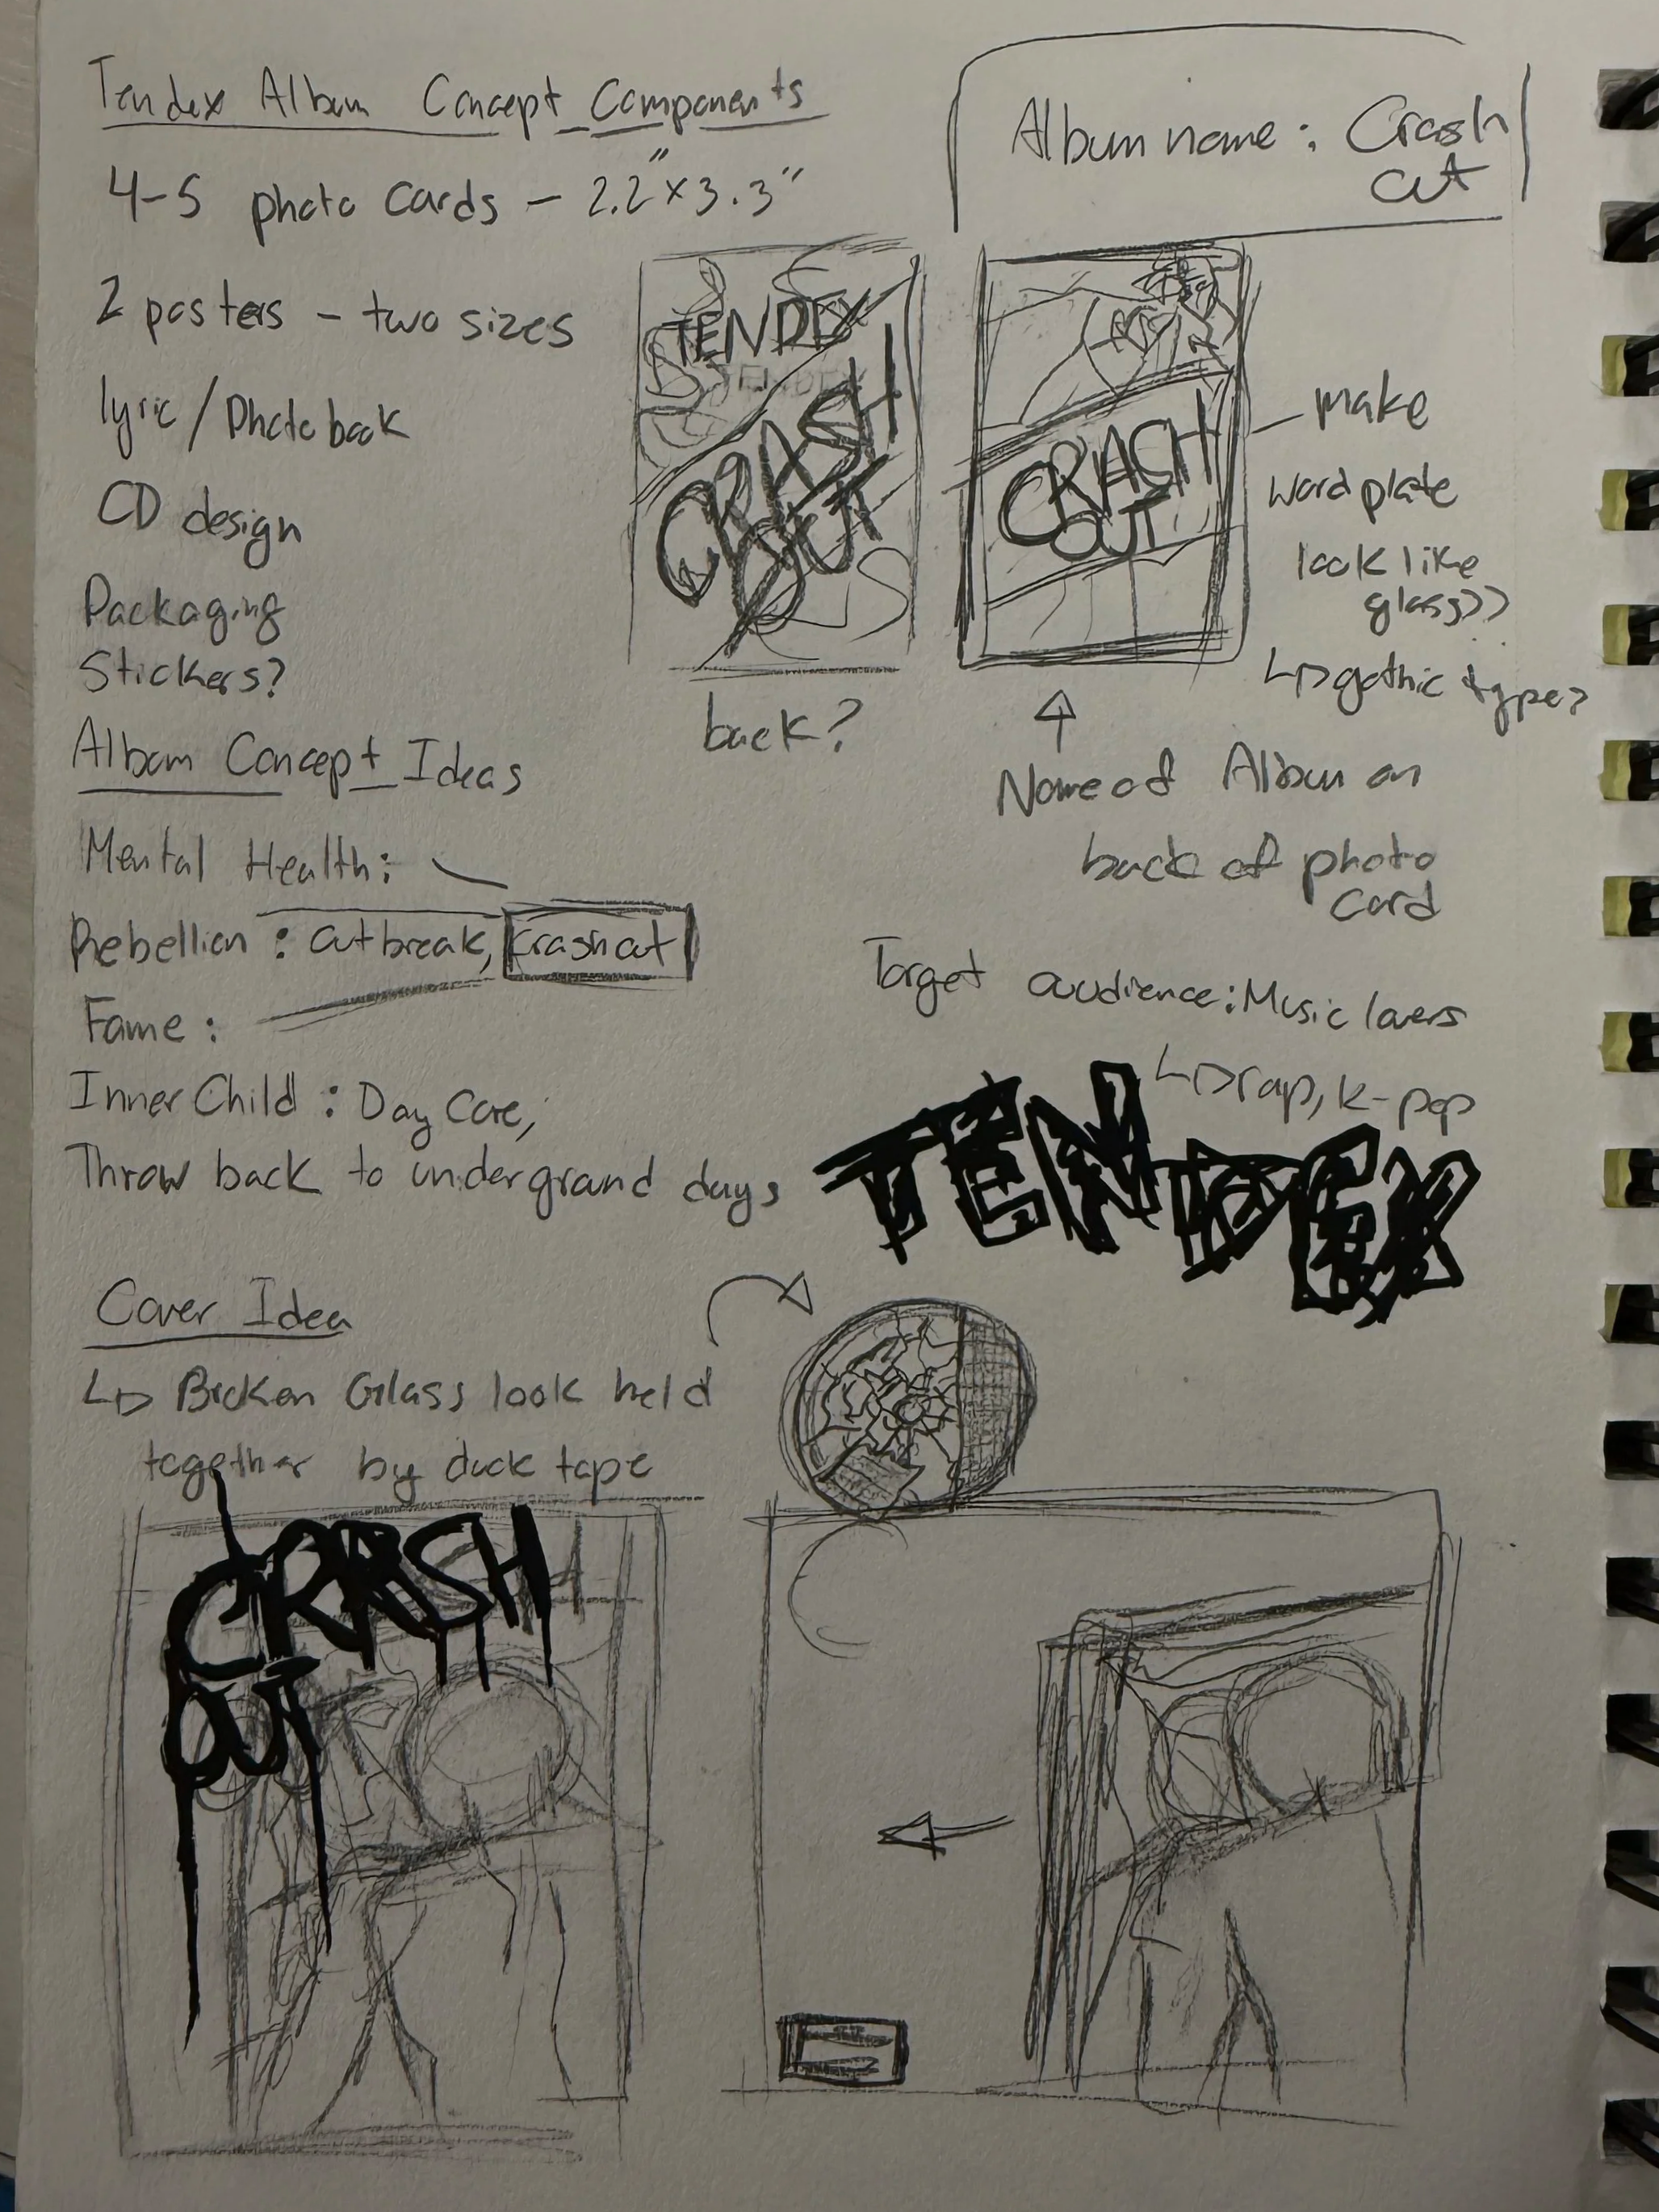 Tendex Album Concept Components
4-5 photo cards - 2.2" x 3.3"
2 posters - two sizes
lyric / Photo book
CD design
Packaging
Stickers?
Album name: Crash
out
TENDEX
TENDEX
CRASH
OUT
back?
CRASH
OUT
make
word plate
look like
glass??
↳ gothic type?
Name of Album on
back of photo
card
Album Concept Ideas
Mental Health:
Rebellion: Outbreak, Crashout
Fame:
Inner Child: Day Care,
Throw back to underground days
Target audience: Music lovers
↳ rap, k-pop
TENDEX
Cover Idea
↳ Broken Glass look held
together by duck tape
CRASH
OUT